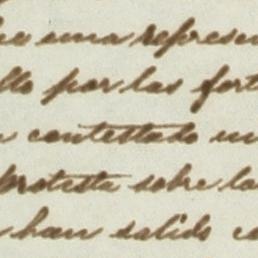 una represen
por las fort
contestado un
protesta sobre la
han salido co